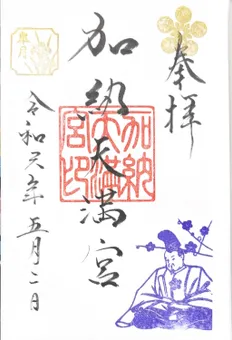 奉拝
加納天満宮
加納天満宮印
令和元年五月二日
皐月